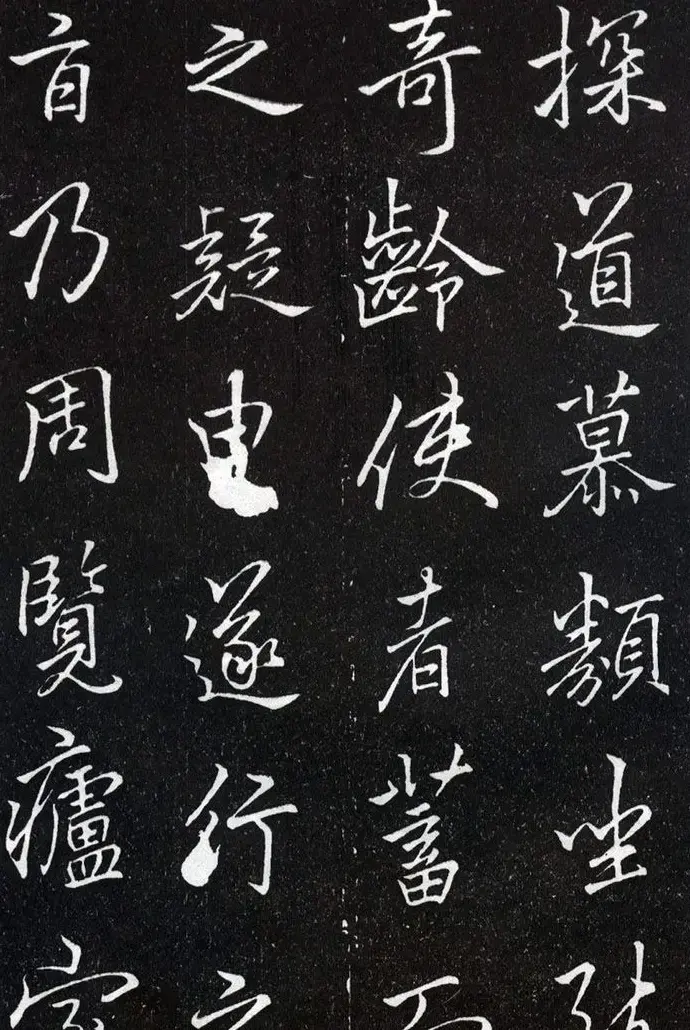 探道慕類坐
奇齡使者蓄
之疑遂行
乃周覽